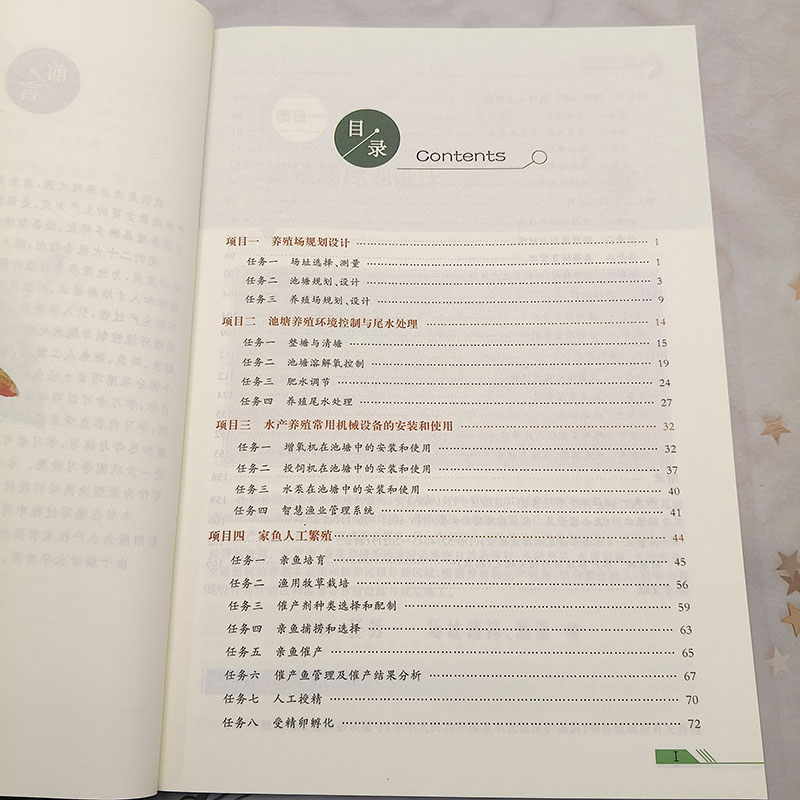 目录
Contents
项目一 养殖场规划设计 1
任务一 场址选择、测量 1
任务二 池塘规划、设计 3
任务三 养殖场规划、设计 9
项目二 池塘养殖环境控制与尾水处理 14
任务一 整塘与清塘 15
任务二 池塘溶解氧控制 19
任务三 肥水调节 24
任务四 养殖尾水处理 27
项目三 水产养殖常用机械设备的安装和使用 32
任务一 增氧机在池塘中的安装和使用 32
任务二 投饲机在池塘中的安装和使用 37
任务三 水泵在池塘中的安装和使用 40
任务四 智慧渔业管理系统 41
项目四 家鱼人工繁殖 44
任务一 亲鱼培育 45
任务二 渔用牧草栽培 56
任务三 催产剂种类选择和配制 59
任务四 亲鱼捕捞和选择 63
任务五 亲鱼催产 65
任务六 催产鱼管理及催产结果分析 67
任务七 人工授精 70
任务八 受精卵孵化 72
I